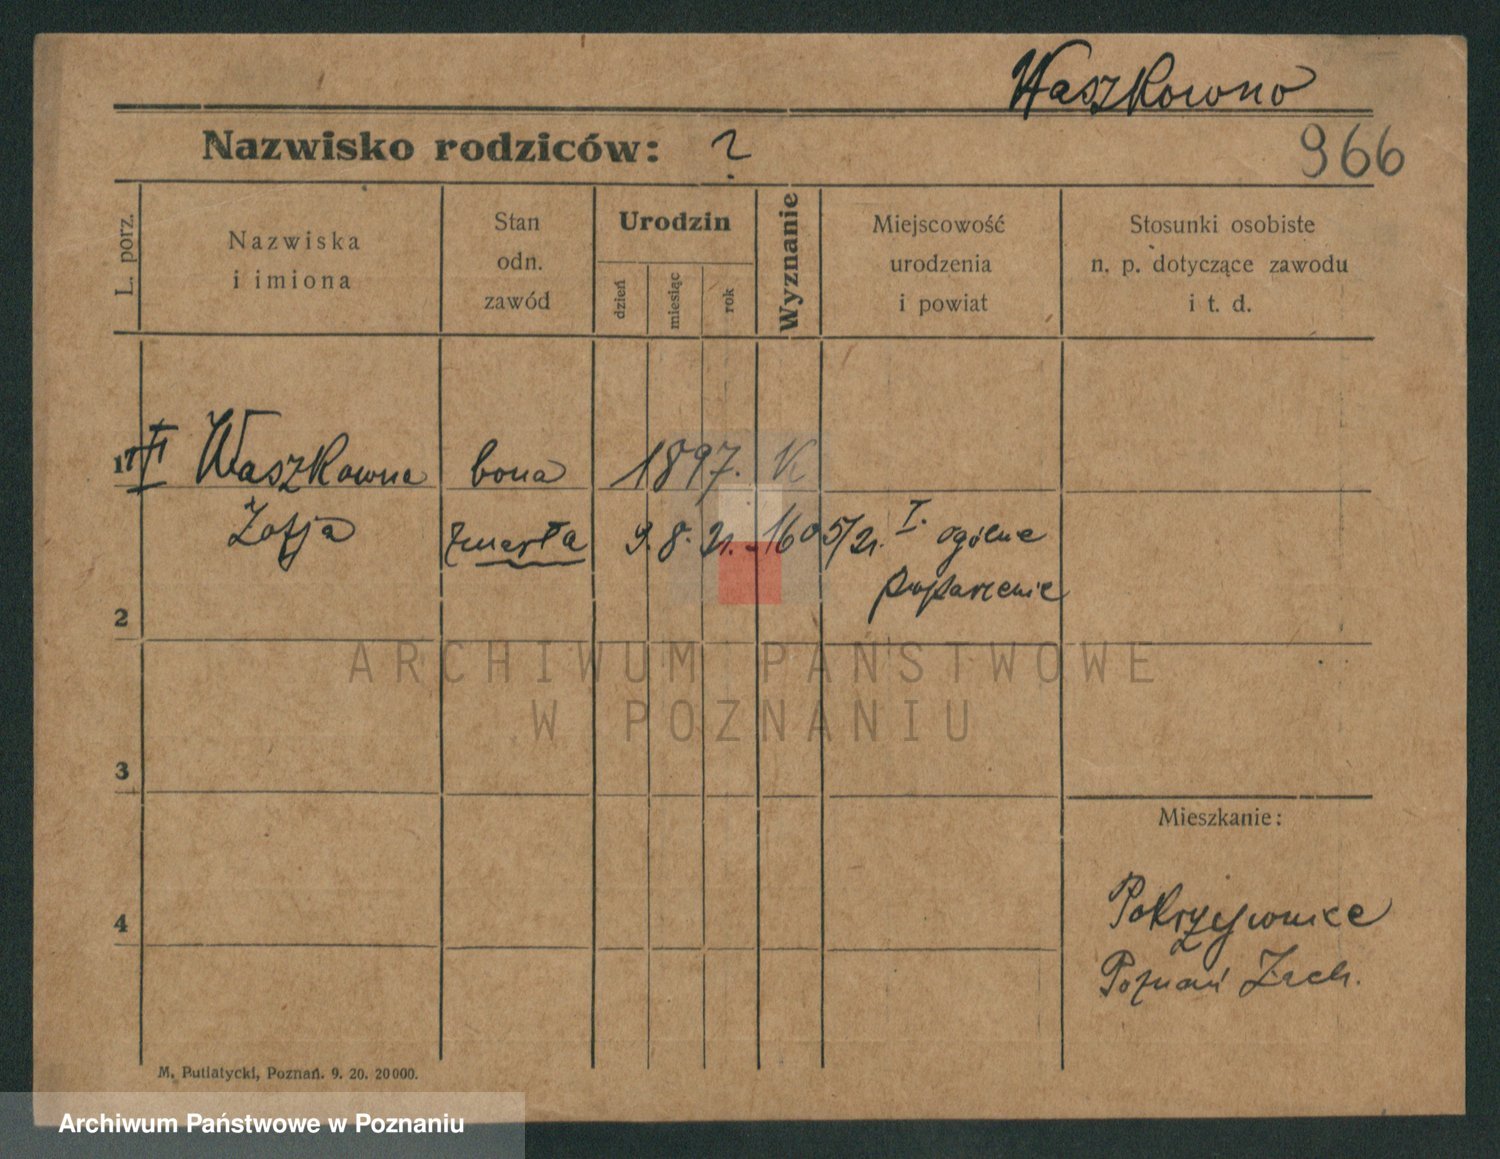 Waszkowno
Nazwisko rodziców: ?
966
L. porz.
Nazwiska
i imiona
Stan
odn.
zawód
Urodzin
dzień
miesiąc
rok
Wyznanie
Miejscowość
urodzenia
i powiat
Stosunki osobiste
n. p. dotyczące zawodu
i t. d.
1 Waszkowna bona 1897. K
Zofja zmarła 9. 8. 21. - 1605/21. I. ogólne
poparzenie
2
ARCHIWUM PAŃSTWOWE
W POZNANIU
3
Mieszkanie:
4
Pokrzywnice
Poznań Zach.
M. Putiatycki, Poznań. 9. 20. 20000.
Archiwum Państwowe w Poznaniu